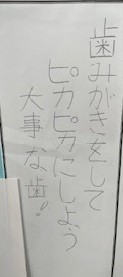 歯みがきをして
ピカピカにしよう
大事な歯!